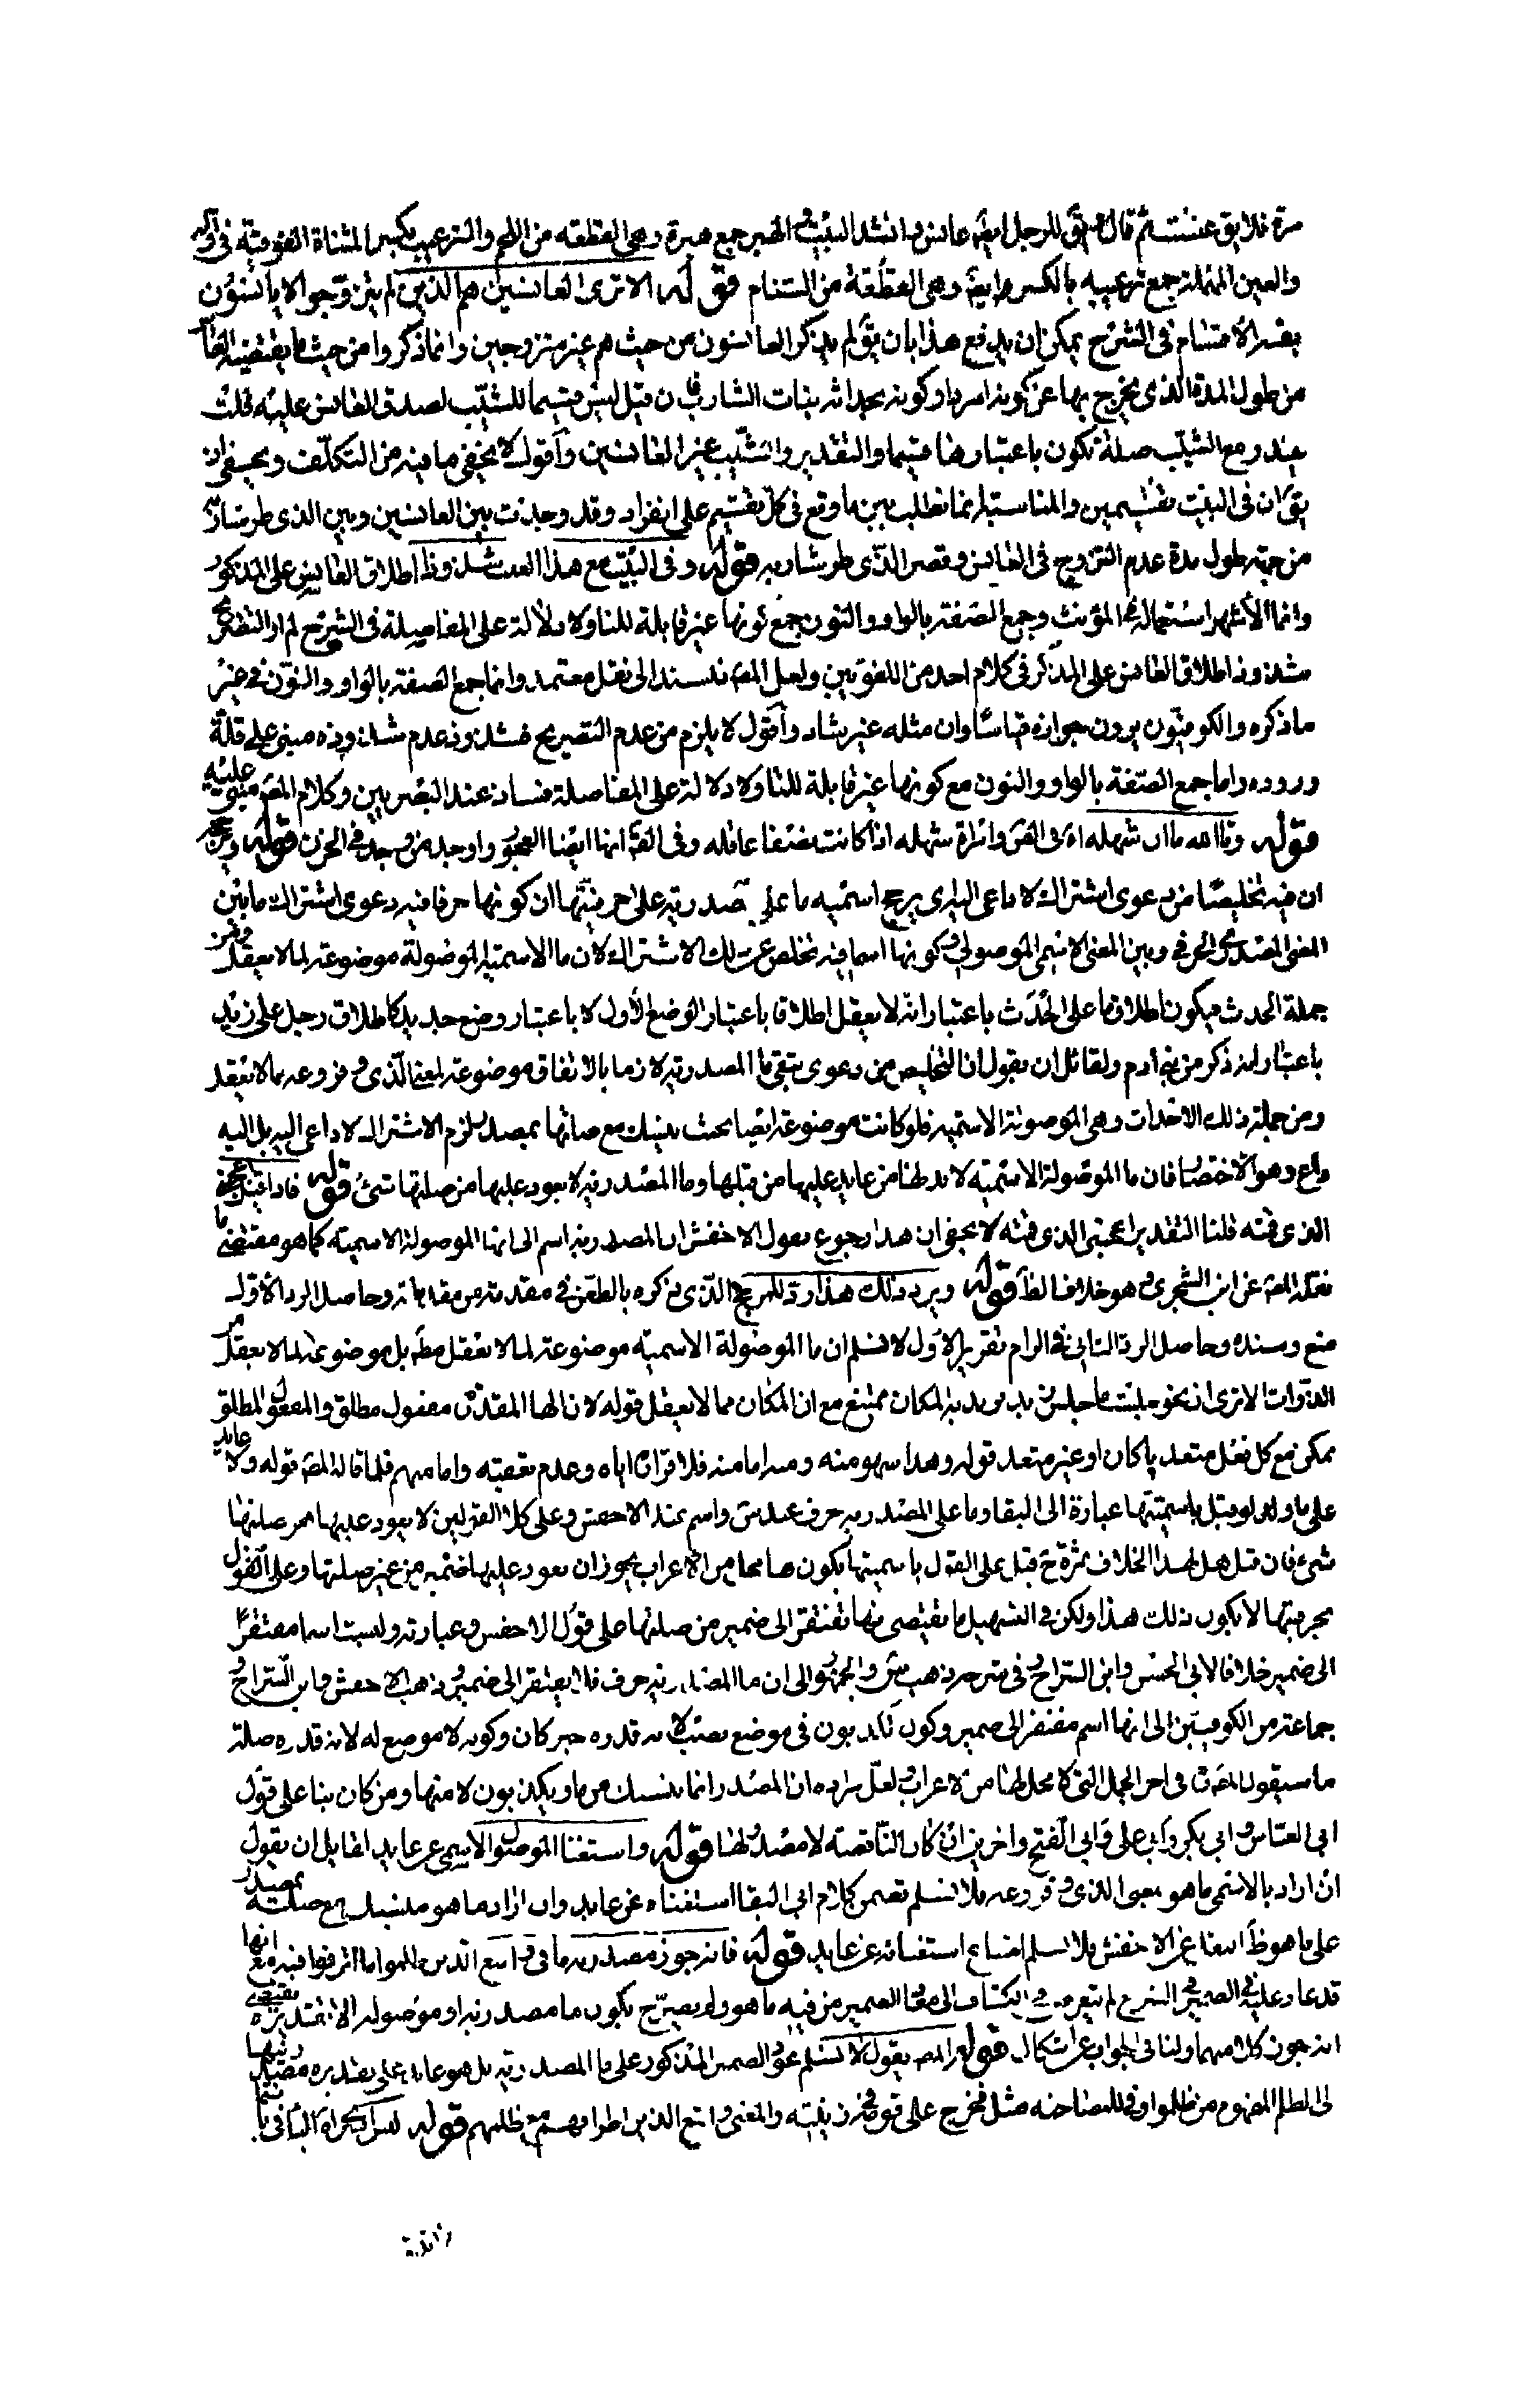 مرة فلا يق عنست ثم قال ويق للرجل ايضا عانس وانشد البيت الهبر جمع هبرة وهى القطعة من اللحم والترعيب بكسر المثناة الفوقية فى اوله
والعين المهملة جمع ترعيبه بالكسر ايضا وهى القطعة من السنام قوله الا ترى العانسين هم الذين لم يتزوجوا لا يناسبون
بقية الاقسام فى الشرح يمكن ان يدفع هذا بان يق لم يذكر العانسون من حيث هم غير متزوجين وانما ذكروا من حيث ما يقتضيه الغا
من طول المدة الذى يخرج بها عن كونه امردا وكونه بحداثه بنات الشارب فان قيل ليس قسيما للشيب لصدق العانس عليه قلت
يقدر مع الشيب صلة تكون باعتبارها قسيما والتقدير والشيب غير العانسين وأقول لا يخفى ما فيه من التكلف ويحسن ان
يق ان فى البيت تقسيمين والمناسبة انما تطلب بين ما وقع فى كل تقسيم على انفراد وقد وجدت بين العانسين وبين الذى طر شاربه
من جهة طول مدة عدم التزوج فى العانس وقصر الذى طر شاربه قوله وفى البيت مع هذا العيب شذوذا اطلاق العانس على المذكر
وانما الأشهر استعماله فى المؤنث وجمع الصفة بالواو والنون مع كونها غير قابلة للتا ولا دلالة على المفاضلة فى الشرح لم ار التصريح
شذوذ اطلاق العانس على المذكر فى كلام احد من اللغويين ولعل المص يستند الى نقل معتمد وانما جمع الصفة بالواو والنون فى غير
ما ذكره والكوفيون يرون جوازه قياسا وان مثله غير شاذ وأقول لا يلزم من عدم التصريح بشذوذه عدم شذوذه مبنى على قلة
وروده واما جمع الصفة بالواو والنون مع كونها غير قابلة للتا ولا دلالة على المفاضلة فشاذ عند البصريين وكلام المص مبنى عليه
قوله وتالله ما ان شهلة ام فى الص وامراة شهلة اذا كانت نصفا عاقلة وفى الق انها ايضا العجوز اوجد من وجد فى الحزن قوله ويرجح
ان فيه تخليصا من دعوى اشتراك لا داعى اليه اى يرجح اسمية ما على مصدرية على حرفيتها ان كونها حرفا فيه دعوى اشتراك ما بين
المعنى المصدرى الحرفى وبين المعنى الاسمى الموصولى وكونها اسما فيه تخلص عن ذلك الاشتراك لان ما الاسمية الموضولة موضوعة لما لا يعقل ومن
جملة الحدث فيكون اطلاقها على الحدث باعتبار انه لا يعقل اطلاقا باعتبار الوضع الأول لا باعتبار وضع جديد كاطلاق رجل على زيد
باعتبار انه ذكر من بنى ادم ولقائل ان يقول ان التخليص من دعوى يتقى ما المصدرية لان ما بالاتفاق موضوعة لمعنى الذى وفروعه مما لا يعقل
ومن جملة ذلك الاحداث وهى الموصولة الاسمية فلو كانت موضوعة ايضا بحيث ينسبك مع صلتها بمصدر يلزم الاشتراك لا داعى اليه بل اليه
داع وهو الاختصار فان ما الموصولة الاسمية لا بد لها من عايد عليها من قبلها وما المصدرية لا يعود عليها من صلتها شئ قوله فاذا قيل اعجبنى
الذى قمته قلنا التقدير اعجبنى الذى قمته لا يخفى ان هذا رجوع بقول الاخفش ان المصدرية اسم الى انها الموصولة الاسمية كما هو مقتضى ما
نقله المص عن ابن الشجرى وهو خلاف الظ قوله ويرد ذلك هذا رد للمرجح الذى ذكره بالطعن فى مقدمة من مقدماته وحاصل الرد الأول
منع وسنده وحاصل الرد الثانى فى الزام تقريره الاول لا نسلم ان ما الموصولة الاسمية موضوعة لما لا يعقل مط بل موضوعة لما لا يعقل من
الذوات الا ترى ان نحو جلست ما جلس زيد تريد به المكان ممتنع مع ان المكان مما لا يعقل قوله لان الها المقدرة مفعول مطلق والمفعول المطلق
يمكن مع كل فعل متعديا كان او غير متعد قوله وهذا سهو منه فلاقراره اياه وعدم تعقبه واما منهم فلما قاله المص قوله ولا عايد
على ما ولو قيل باسميتها عبارة ابى البقا وما على المصدرية حرف عند س واسم عند الاخفش وعلى كلا القولين لا يعود عليها من صلتها
شىء فان قيل هل لهذا الخلاف ثمرة ح قيل على القول باسميتها يكون لها محل من الاعراب يجوز ان يعود عليها ضمير من غير صلتها وعلى القول
بحرفيتها لا يكون ذلك هذا ولكن فى التسهيل ما يقتضى انها تفتقر الى ضمير من صلتها على قول الاخفش وعبارته وليست اسما مفتقرا
الى ضمير خلافا لابى الحسن وابن السراج وفى شرحه ذهب س والجمهور الى ان ما المصدرية حرف فلا يفتقر الى ضمير وذهب الاخفش وابن السراج
جماعة من الكوفيين الى انها اسم مفتقر الى ضمير وكون يكذبون فى موضع نصب لانه قدره خبر كان وكونه لا موضع له لانه قدره صلة
ما سيقول المص فى اخر الجمل التى لا محل لها من الاعراب ولعل مراده ان المصدر انما ينسبك من ما ويكذبون لا منها ومن كان بنا على قول
ابى العباس وابى بكر وابى على وابى الفتح واخرين ان كان الناقصة لا مصدر لها قوله واستغنا الموصول الاسمى عن عايد لقايل ان يقول
ان اراد بالاسمى ما هو بمعنى الذى وفروعه فلا نسلم تضمن كلام ابى البقا استغناه عن عايد وان اراد ما هو ينسبك مع صلته بمصدر
على ما هو ظ النقل عن الاخفش فلا نسلم امتناع استغنائه عن عايد قوله فانه جوز مصدرية ما فى واتبع الذين ظلموا ما اترفوا فيه مع انها
قد عاد عليها الضمير فى الشرح لم يتعرض فى الكشاف الى معاد الضمير من فيه ما هو ولم يصرح بكون ما مصدرية او موصولة الا ان تقديره يقتضى
انه جوز كلا منهما ولنا فى الجواب عن اشكال قوله المص يقول لا نسلم عود الضمير المذكور على ما المصدرية بل هو عايد على تقديره مصدريتها
الى الظلم المفهوم من ظلموا وفى للمصاحبة مثل فخرج على قومه فى زينته والمعنى واتبع الذين اترافهم مع ظلمهم قوله ليس اكرام الثانى بما
زائدة